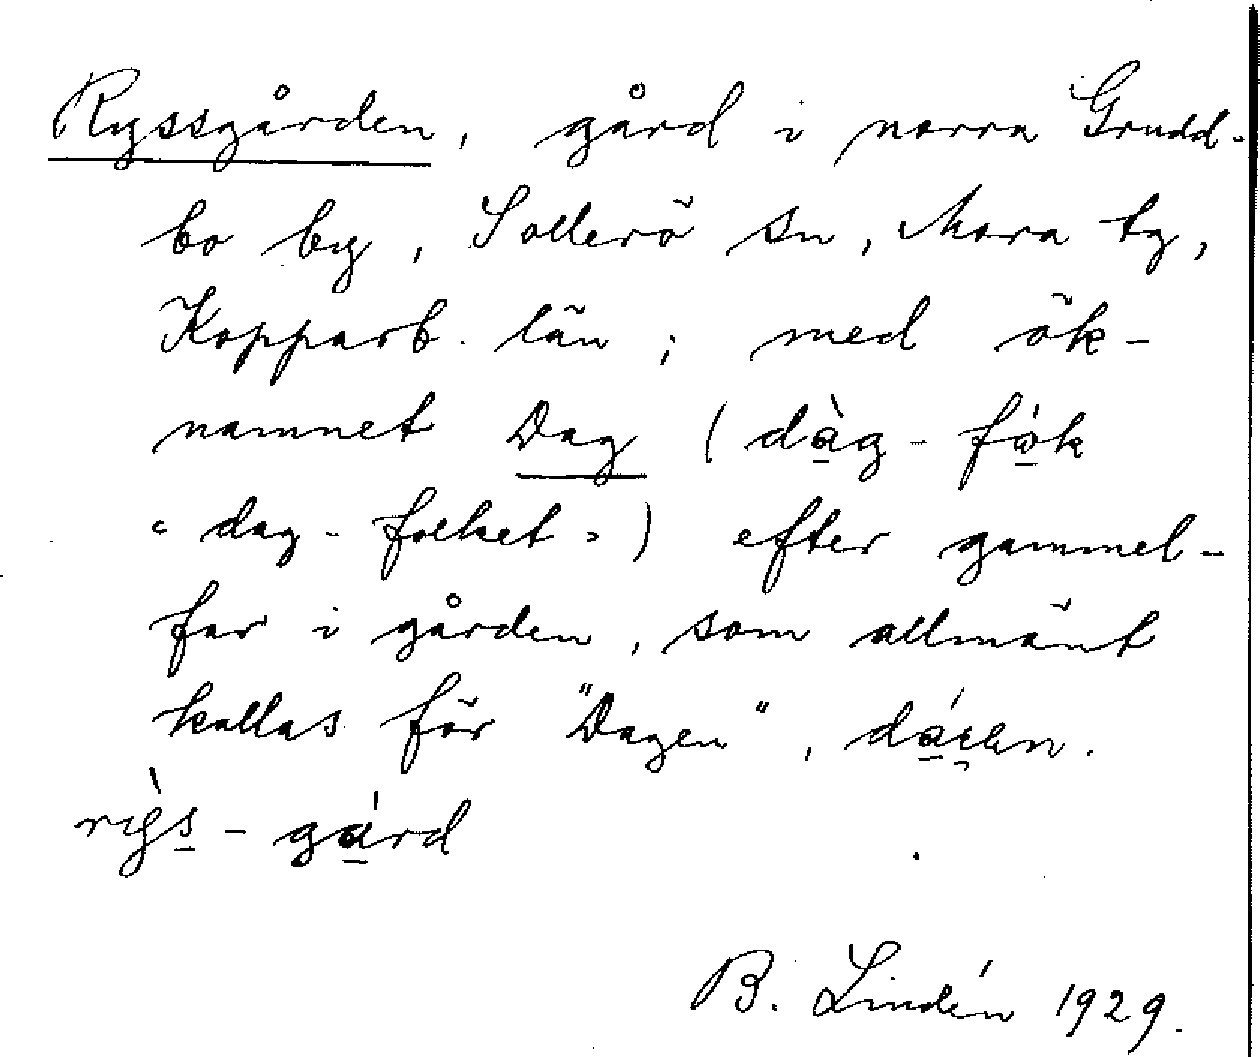 Ryssgården, gård i norra Grudd-
bo by, Sollerö sn, Mora tg,
Kopparb. län; med ök-
namnet Dag (dàg-fók
"dag-folket") efter gammel-
far i gården, som allmänt
kallas för "Dagen",
rỳs-gárd
B. Lindén 1929.